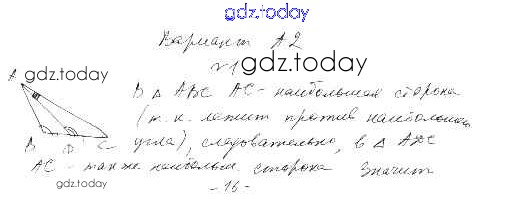 gdz.today
Вариант А2
№1 gdz.today
A gdz.today
В △ ABC AC - наибольшая сторона
(т.к. лежит против наибольшего
B D C угла), следовательно, в △ ADC
AC - также наибольш. сторона Значит
gdz.today
- 16 -